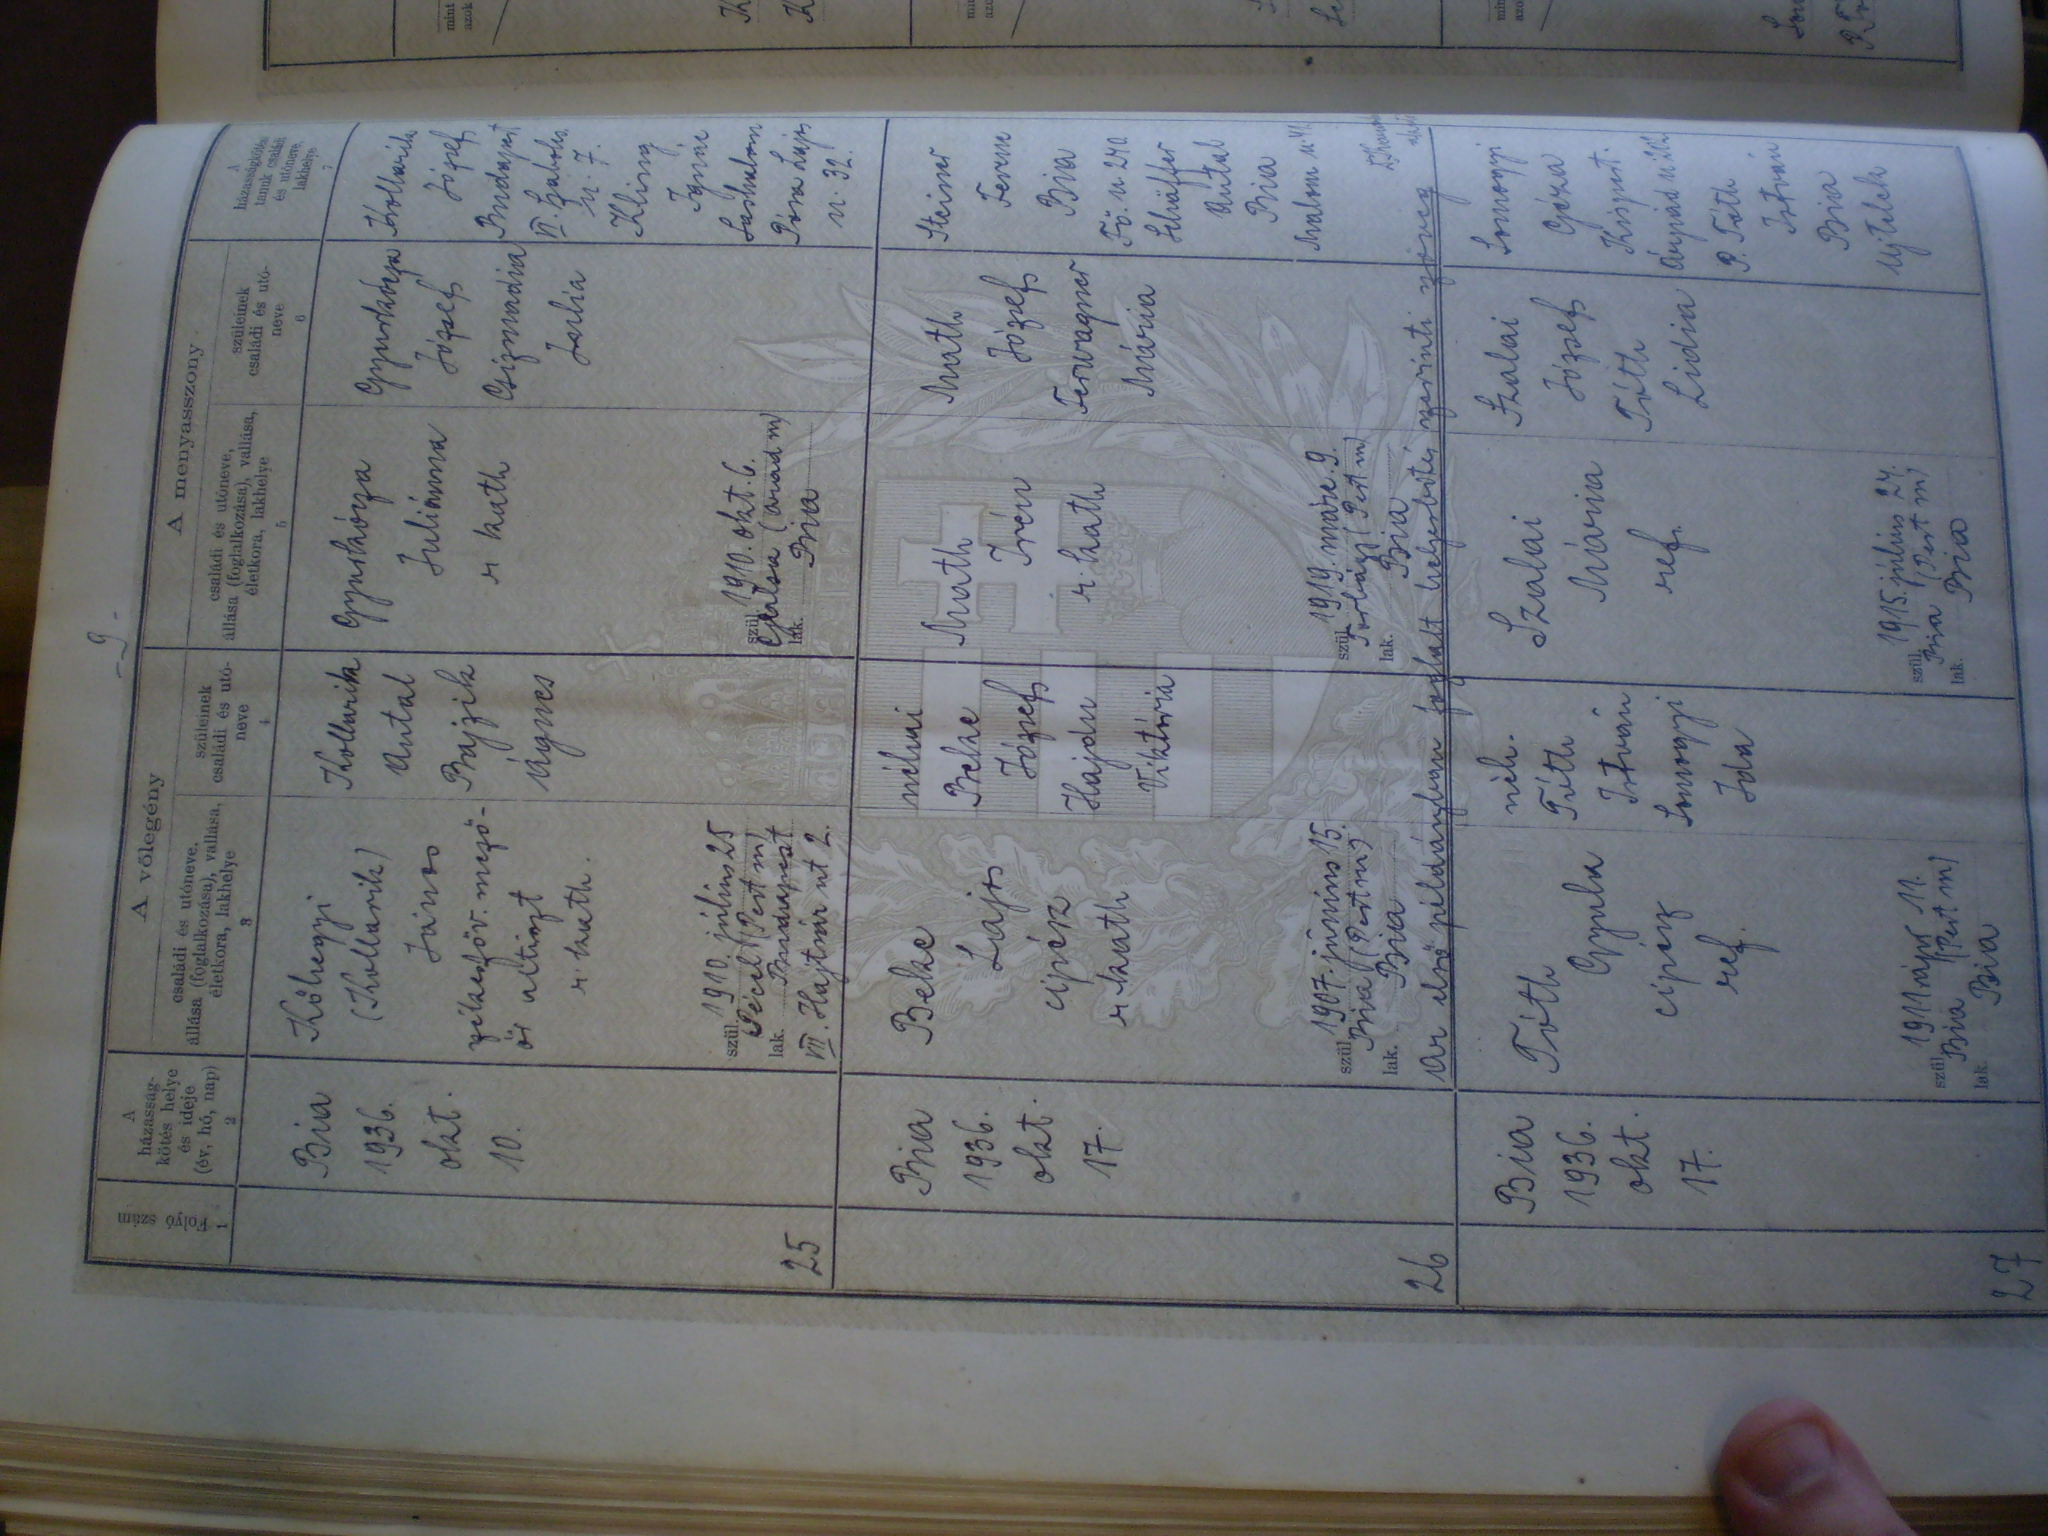 - 9 -
Folyó szám
1
A
házasság-
kötés helye
és ideje
(év, hó, nap)
2
A vőlegény
családi és utóneve,
állása (foglalkozása), vallása,
életkora, lakhelye
3
szüleinek
családi és utó-
neve
4
A menyasszony
családi és utóneve,
állása (foglalkozása), vallása,
életkora, lakhelye
5
szüleinek
családi és utó-
neve
6
A
házasságkötés
tanuk családi
és utóneve,
lakhelye
7
25
Bia
1936.
okt.
10.
Kőhegyi
(Kollarik)
János
székesföv. mező-
őr altiszt
r. kath.
szül. 1910. július 25
Pécel (Pest m)
lak. Budapest
VIII. Hajtsár út 2.
Kollarik
Antal
Bajzik
Ágnes
Julianna
r kath
szül. 1910. okt. 6.
(Arad m)
lak. Bia
József
Csizmadia
Kollarik
József
Budapest
u. 7.
Kling
u. 32.
26
Bia
1936.
okt.
17.
Beke
Lajos
cipész
r. kath
szül. 1907. június 15.
Bia (Pest m)
lak. Bia
néhai
Beke
József
Hajdu
Viktória
Math
Irén
r. kath
szül. 1919. márc. 9.
Torbágy (Pest m)
lak. Bia
Math
József
Ferwagner
Mária
Steiner
Ferenc
Bia
Fő u 240
Schäffer
Antal
Bia
Malom u 41
Az első példányban foglalt helyesbítés szerinti szöveg
27
Bia
1936.
okt.
17.
Tóth
Gyula
cipész
ref.
szül. 1911 ápr 11.
Bia (Pest m)
lak. Bia
néh.
Tóth
István
Somogyi
Ida
Szalai
Mária
ref.
szül. 1915. július 24.
Bia (Pest m)
lak. Bia
Szalai
József
Tóth
Lidia
Somogyi
Géza
Kispest.
Árpád u 212.
P. Tóth
István
Bia
Ujtelek
mint
azok